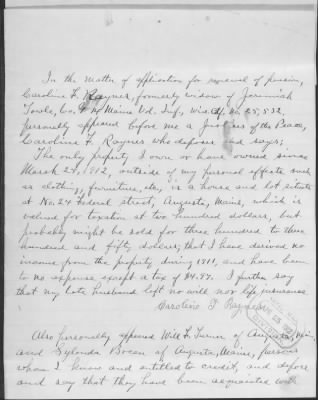 In the matter of application for renewal of pension,
Caroline F. Raynes, formerly widow of Jeremiah
Towle, Co. Maine Vol. Inf., Wid. No. 25,532,
personally appeared before me a Justice of the Peace,
Caroline F. Raynes who deposes and says;
The only property I own or have owned since
March 24, 1912, outside of my personal effects such
as clothing, furniture, etc, is a house and lot situate
at No. 24 Federal street, Augusta, Maine, which is
valued for taxation at two hundred dollars, but
probably might be sold for three hundred to three
hundred and fifty dollars; that I have derived no
income from the property during 1911, and have been
to no expense except a tax of I further say
that my late husband left no will nor life insurance
Caroline F. Raynes
Also personally appeared Will F. Turner of Augusta,
and of Augusta, Maine, persons
whom I know and entitled to credit, and depose
and say that they have been acquainted with